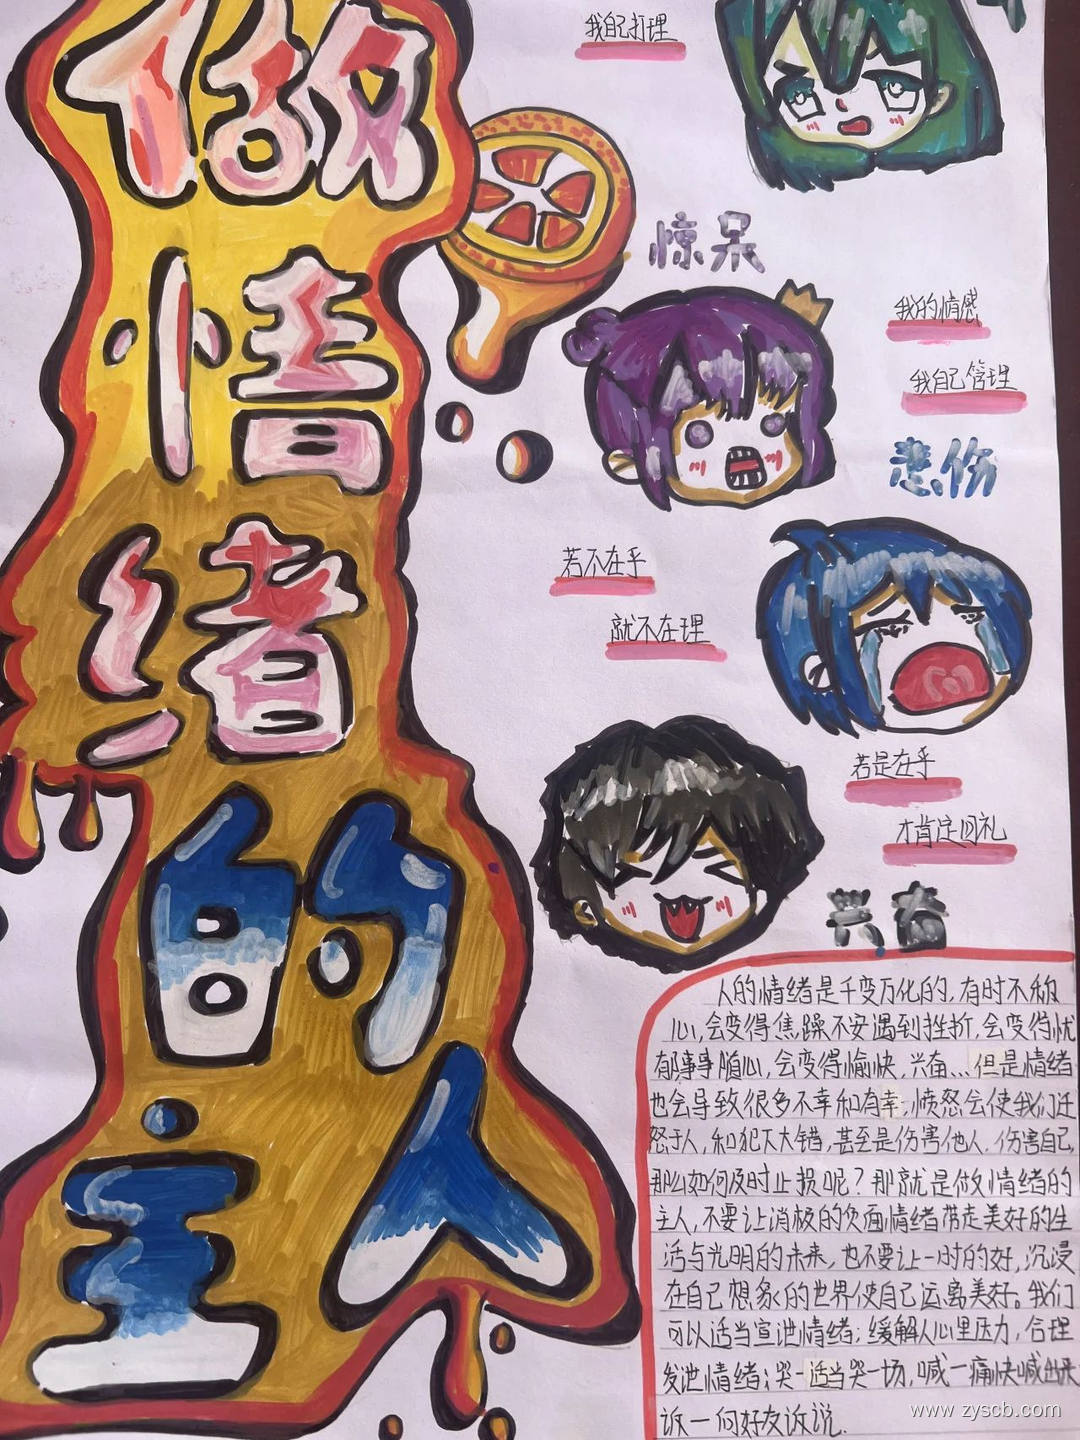 做情绪的主人
我自己打理
惊呆
我的情感
我自己管理
悲伤
若不在乎
就不在理
若是在乎
才肯定回礼
兴奋
人的情绪是千变万化的,有时不称
心,会变得焦躁不安遇到挫折,会变得忧
郁事事随心,会变得愉快,兴奋…但是情绪
也会导致很多不幸和有幸,愤怒会使我们迁
怒于人,和犯下大错,甚至是伤害他人.伤害自己,
那么如何及时止损呢?那就是做情绪的
主人,不要让消极的负面情绪带走美好的生
活与光明的未来,也不要让一时的好,沉浸
在自己想象的世界使自己远离美好。我们
可以适当宣泄情绪;缓解人心里压力,合理
发泄情绪;哭一适当哭一场,喊一痛快喊出来
诉一向好友诉说.
www.zyscb.com